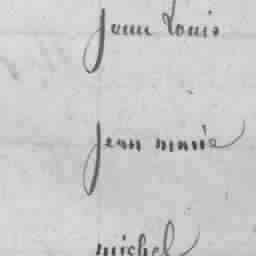 jean Louis
jean marie
michel